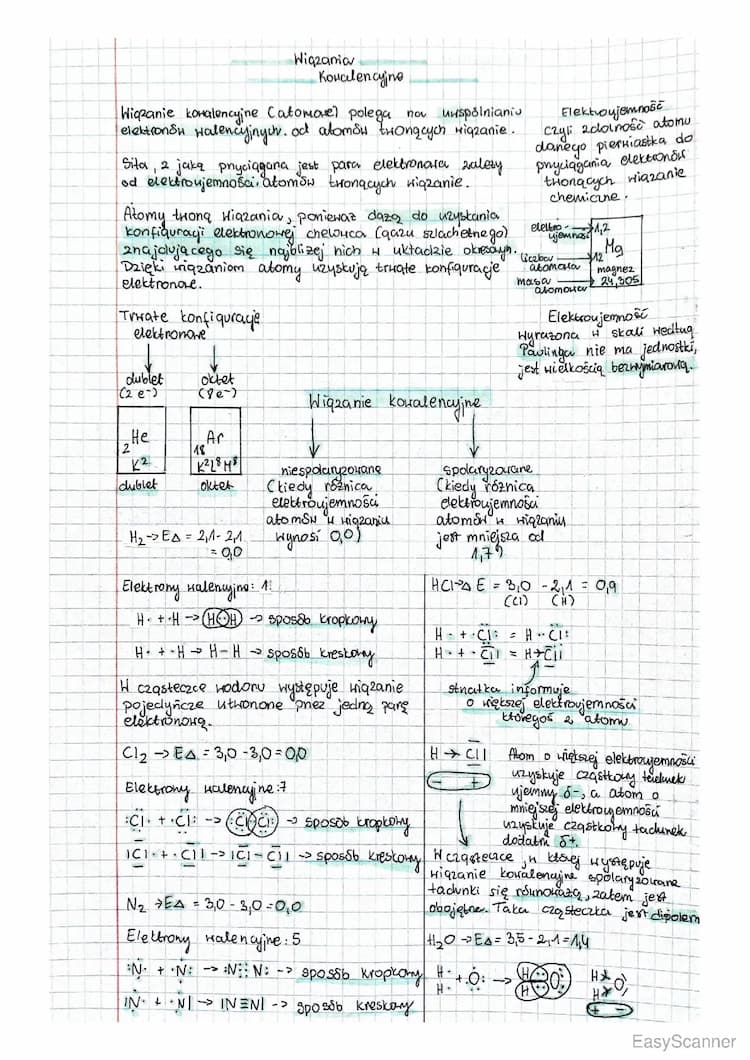 Wiązania
Kowalencyjne
Wiązanie kowalencyjne (atomowe) polega na uwspólnianiu
elektronów walencyjnych. od atomów tworzących wiązanie.
Siła, z jaką przyciągana jest para elektronowa zależy
od elektroujemności atomów tworzących wiązanie.
Atomy tworzą wiązania, ponieważ dążą do uzyskania
konfiguracji elektronowej helowca (gazu szlachetnego)
znajdującego się najbliżej nich w układzie okresowym.
Dzięki wiązaniom atomy uzyskują trwałe konfiguracje
elektronowe.
Elektroujemność
czyli zdolność atomu
danego pierwiastka do
przyciągania elektronów
tworzących wiązanie
chemiczne.
elektro-
ujemność
1,2
Mg
liczba
atomowa
12
magnez
masa
atomowa
24,305
Elektroujemność
wyrażona w skali według
Paulinga nie ma jednostki,
jest wielkością bezwymiarową.
Trwałe konfiguracje
elektronowe
dublet
(2 e-)
oktet
(8 e-)
He
2
K²
dublet
Ar
18
K²L⁸M⁸
oktet
Wiązanie kowalencyjne
niespolaryzowane
(kiedy różnica
elektroujemności
atomów w wiązaniu
wynosi 0,0)
spolaryzowane
(kiedy różnica
elektroujemności
atomów w wiązaniu
jest mniejsza od
1,7)
H₂ → EΔ = 2,1 - 2,1
= 0,0
Elektrony walencyjne: 1
H· + ·H → H··H → sposób kropkowy
H· + ·H → H-H → sposób kreskowy
W cząsteczce wodoru występuje wiązanie
pojedyńcze utworzone przez jedną parę
elektronową.
Cl₂ → EΔ = 3,0 - 3,0 = 0,0
Elektrony walencyjne: 7
:Cl· + ·Cl: → :Cl··Cl: → sposób kropkowy
|Cl· + ·Cl| → |Cl-Cl| → sposób kreskowy
N₂ → EΔ = 3,0 - 3,0 = 0,0
Elektrony walencyjne: 5
:N· + ·N: → :N⋮⋮N: -> sposób kropkowy
|N· + ·N| → |N≡N| -> sposób kreskowy
HCl → Δ E = 3,0 - 2,1 = 0,9
(Cl) (H)
H· + ·Cl: = H··Cl:
H· + ·Cl| = H→Cl|
strzałka informuje
o większej elektroujemności
któregoś z atomu
H → Cl|
- +
Atom o większej elektroujemności
uzyskuje cząstkowy ładunek
ujemny δ-, a atom o
mniejszej elektroujemności
uzyskuje cząstkowy ładunek
dodatni δ+.
W cząsteczce, w której występuje
wiązanie kowalencyjne spolaryzowane
ładunki się równoważą, zatem jest
obojętne. Taka cząsteczka jest dipolem
H₂O → EΔ = 3,5 - 2,1 = 1,4
H·
H· + ·O: → H H O:
H
H O
+ -
EasyScanner